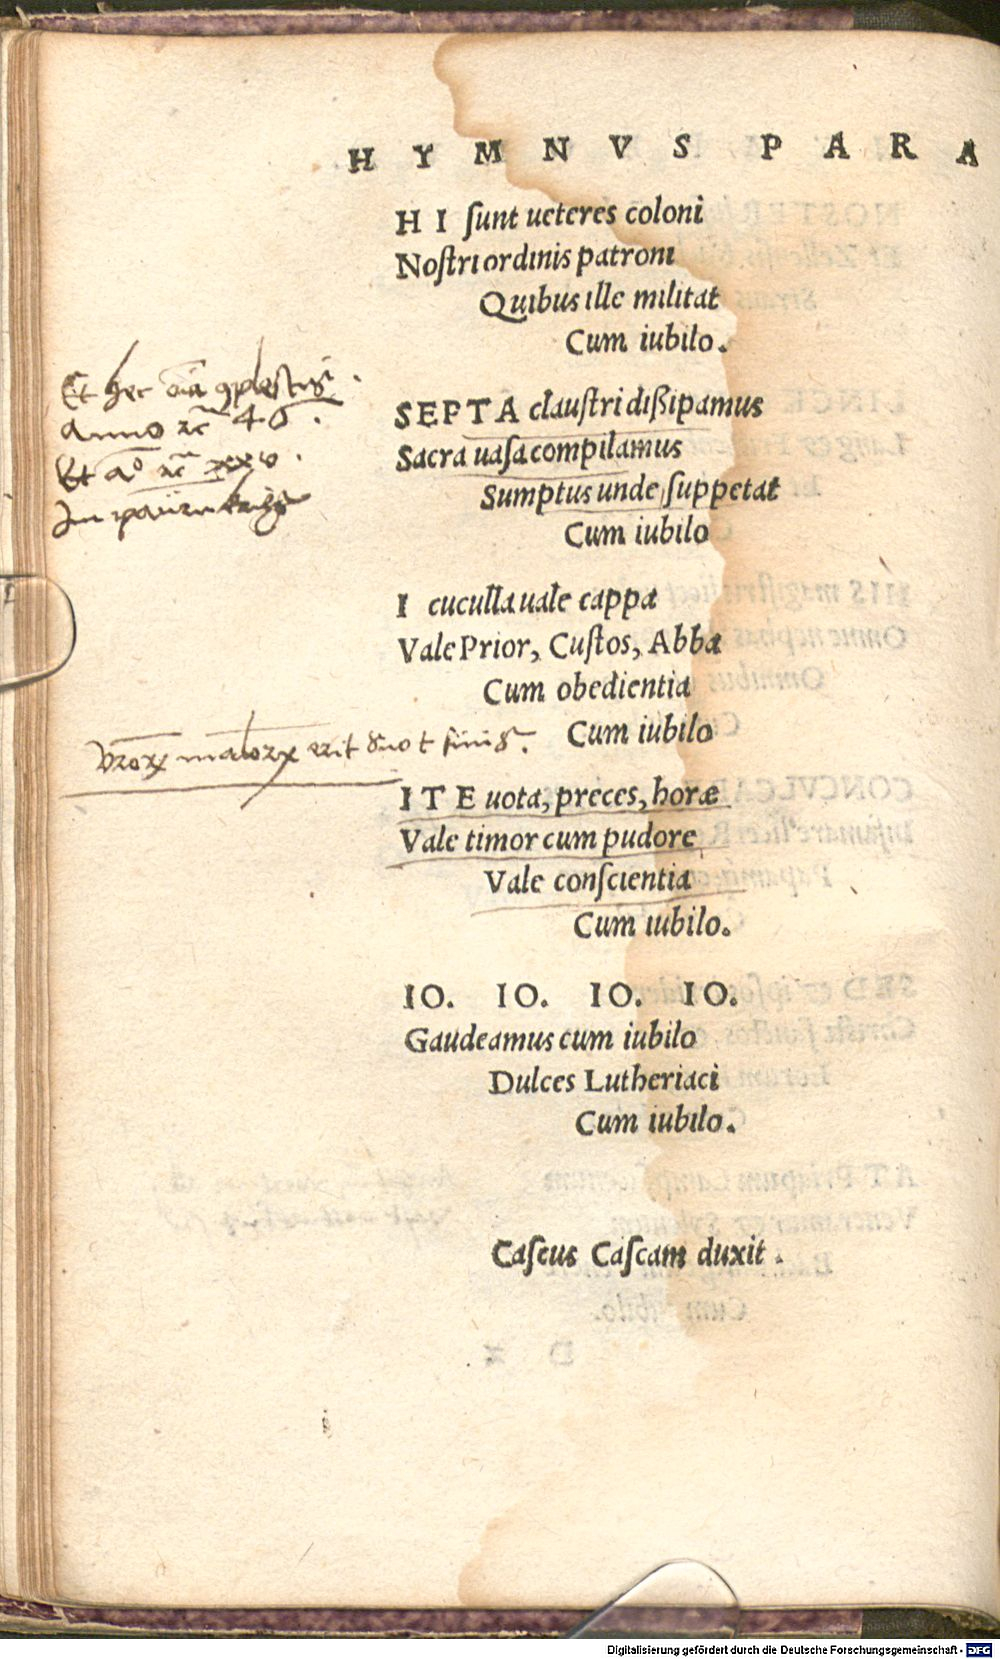 HYMNVS PARA
HI ſunt ueteres coloni
Noſtri ordinis patroni
Quibus ille militat
Cum iubilo.
Et hec
anno 46.
Et
SEPTA clauſtri dißipamus
Sacra uaſa compilamus
Sumptus unde ſuppetat
Cum iubilo
I cuculla uale cappa
Vale Prior, Cuſtos, Abba
Cum obedientia
Cum iubilo
erit
ITE uota, preces, horæ
Vale timor cum pudore
Vale conſcientia
Cum iubilo.
IO. IO. IO. IO.
Gaudeamus cum iubilo
Dulces Lutheriaci
Cum iubilo.
Caſcus Caſcam duxit.
Digitalisierung gefördert durch die Deutsche Forschungsgemeinschaft - DFG